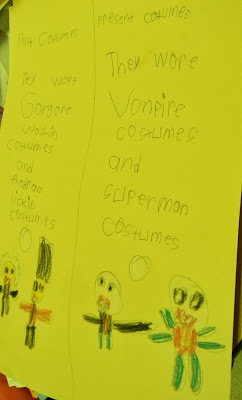 Past Costumes
They wore
Gorgore
Woshin
costumes
and
Abrom
lickin
costumes
present costumes
They wore
Vonpire
costumes
and
superman
costumes